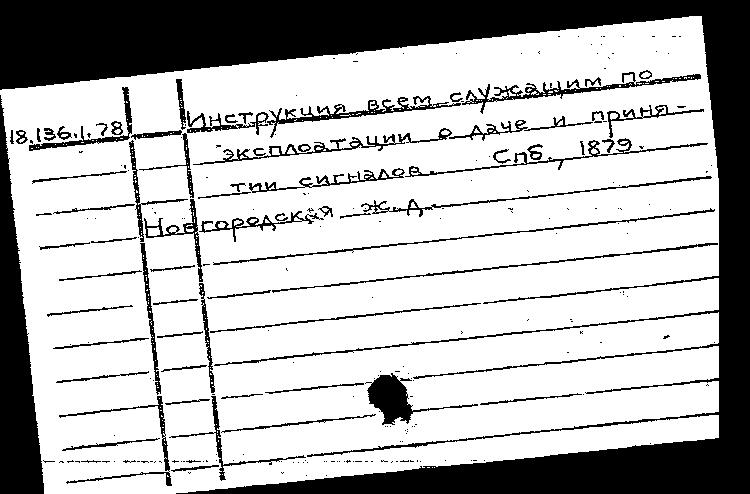 18.136.1.78 Инструкция всем служащим по
эксплоатации о даче и приня-
тии сигналов. Спб., 1879.
Новгородская ж.д.